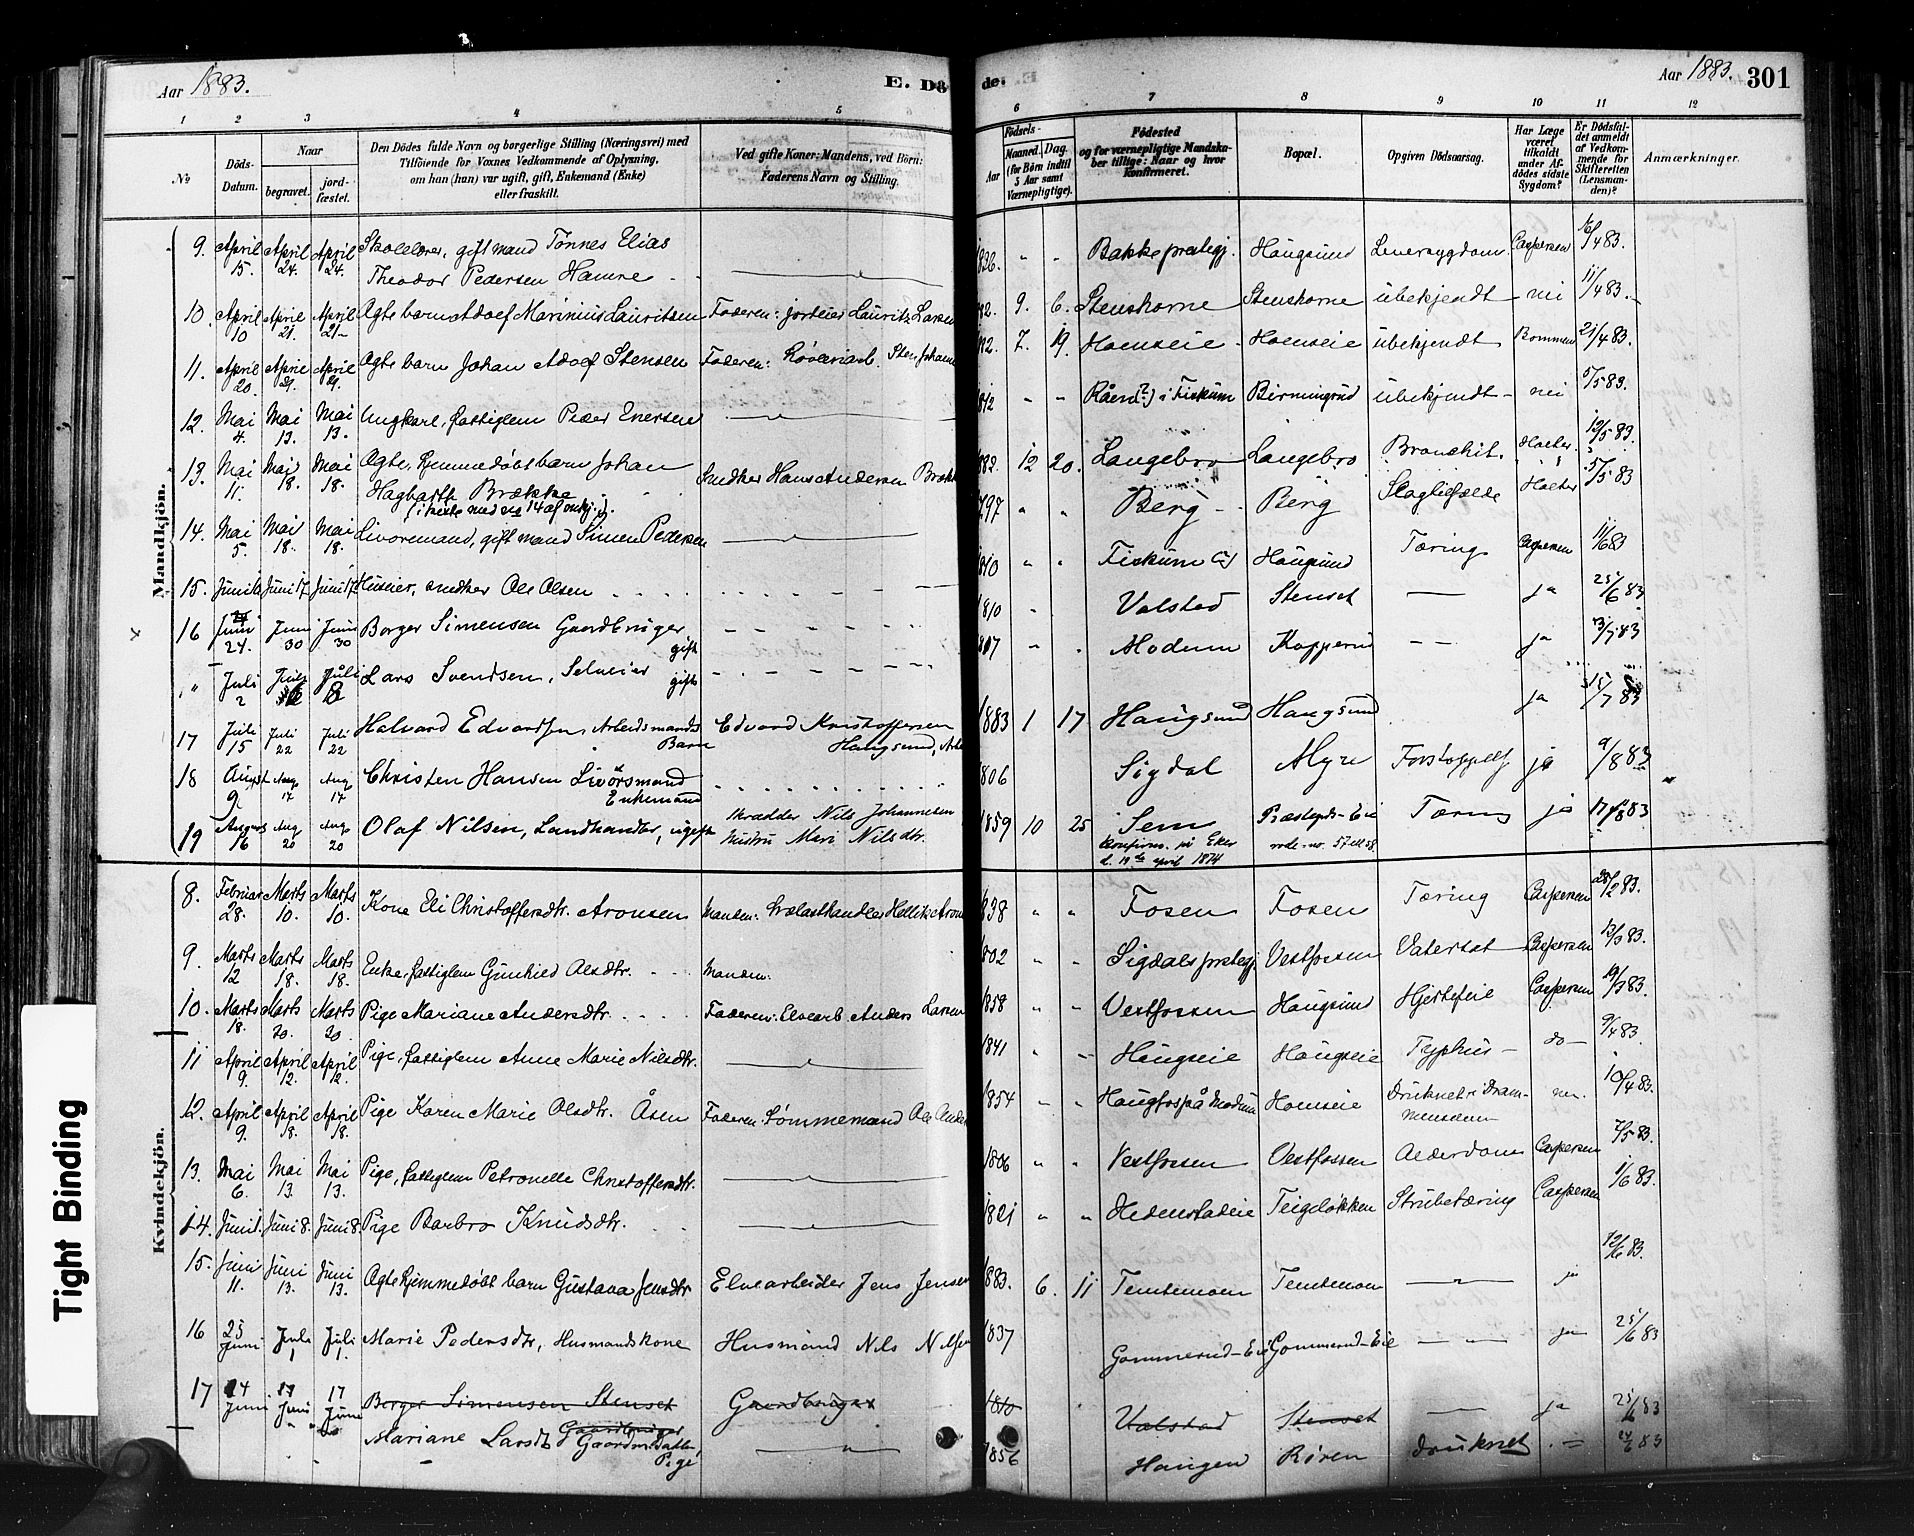 Aar 1883.
E. Dø
de.
Aar 1883.
301
1 2 3 4 5 6 7 8 9 10 11 12
No
Døds-Datum.
Naar
begravet.
jord-fæstet.
Den Dödes fulde Navn og borgerlige Stilling (Næringsvei) med
Tilföiende for Voxnes Vedkommende af Oplysning,
om han (hun) var ugift, gift, Enkemand (Enke)
eller fraskilt.
Ved gifte Koner: Mandens, ved Börn:
Faderens Navn og Stilling.
Födsels-
Aar
Maaned. Dag.
(for Börn indtil
5 Aar samt
Værnepligtige).
Födested
og for værnepligtige Mandska-
ber tillige: Naar og hvor
konfirmeret.
Bopæl.
Opgiven Dödsaarsag.
Har Læge
været
tilkaldt
under Af-
dödes sidste
Sygdom?
Er Dödsfal-
det anmeldt
af Vedkom-
mende for
Skifteretten
(Lensman-
den)?
Anmærkninger.
Mandkjön.
9. April 15. April 24. April 24. Skolelærer, gift mand Tønnes Elias
Theodor Pedersen Hamre 1836. Bakke prestegj. Haugsund Leversygdom Caspersen 16/4 83.
10. April 10 April 21. April 21 Ægte barn Adolf Marinius Lauritsen Faderen: jordeier Lauritz Larsen 882. 9. 6. Stenshorne Stenshorne ubekjendt nei 11/4 83.
11. April 20. April 29. April 29. Ægte barn Johan Adolf Stensen Faderen: Sten Johann 882. 7. 19. Hoenseie Hoenseie ubekjendt Bommen 21/4 83.
12. Mai 4. Mai 13. Mai 13. Ungkarl, fattiglem Peder Enersen 1812 Råen (?) i Fiskum Birmingrud ubekjendt nei 5/5 83.
13. Mai 11. Mai 18. Mai 18. Ægte, hjemmedøbt barn Johan
Hagbarth Brække Snedker Hans Andersen Brække 882. 12 20. Langebro Langebro Bronchit. Holter 12/5 83.
14. Mai 5. Mai 18. Mai 18. gift mand Simen Pedersen 1797 Berg Berg Slagtilfælde Holter 5/5 83
15. Juni Juni 17 Juni 17 Huseier, snedker Ole Olsen 1810 Fiskum (?) Haugsund Tæring Caspersen 11/6 83
16 Juni 24. Juni 30 Juni 30 Borger Simensen Gaardbruger
gift 1810 Valstad Stenset ja 25/6 83
" Juli 2 Juli Juli 8 Lars Svendsen, Selveier gift 1807 Modum Kopperud ja 3/7 83
17 Juli 15 Juli 22 Juli 22 Halvard Edvardsen, Arbeidsmands
Barn Edvard Kristoffersen
Haugsund, 1883 1 17 Haugsund Haugsund ja 15/7 83
18 August 9 Aug 17 Aug 17 Christen Hansen Livörsmand
Enkemand 1806 Sigdal Myre ja 9/8 83
19 August 16 Aug 20 Aug 20 Olaf Nilsen, Landhandler, ugift Skrædder Nils Johannesen
Hustru Mari Nilsdtr. 1859 10 25 Sem Præstegds-Eie Tæring ja 17/8 83
konfirm. på Eker
april 1874
Kvindekjön.
8. Februar 28. Marts 10. Marts 10. Kone Eli Christoffersdtr. Aronsen Manden: Trælasthandler 1838 Fosen Fosen Tæring Caspersen 28/2 83.
9. Marts 12 Marts 18. Marts 18. Enke, fattiglem Gunhild Olsdtr. Manden: 1802 Sigdals prestegj. Vestfossen Vatersot Caspersen 13/3 83.
10. Marts 18. Marts 20. Marts 20. Pige Mariane Andersdtr. Faderen: Elvearb. Anders Larsen 1858 Vestfossen Haugsund Hjertefeil Caspersen 19/3 83.
11 April 9. April 12. April 12. Pige, fattiglem Anne Marie Nilsdtr. 1841 Haugseie Haugseie Typhus do 9/4 83.
12. April 9. April 18. April 18. Pige Karen Marie Olsdtr. Åsen Faderen: Tømmermand Ole Ander 1854 Haugfos på Modum Hoenseie Druknet i Dram-
menselven nei. 10/4 83.
13. Mai 6. Mai 13. Mai 13. Pige, fattiglem Petronelle Christoffersdtr. 1806 Vestfossen Vestfossen Alderdom Caspersen 7/5 83.
14. Juni 1. Juni 8. Juni 8. Pige Barbro Knudsdtr. 1821 Hedenstadeie Teigeløkken Strubetæring Caspersen 1/6 83.
15. Juni 11. Juni 13. Juni 13. Ægte hjemmedøbt barn Gustava Jensdtr Elvearbeider Jens Jensen 883. 6. 11 Temtemoen Temtemoen ja 12/6 83.
16 25 Juni Juli 1 Juli 1. Marie Pedersdtr, Husmandskone Husmand Nils Nilsen 1837 Gommerud-Eie Gommerud-Eie ja 25/6 83
17 14 Juni 17 Juni 17 Juni Borger Simensen Stenset Gaardbruger 1810 Valstad Stenset ja 25/6 83
Gaardbruger
Mariane Larsdtr Gaardm. Datter,
Pige 1856 Haugen Røren druknet 24/6 83
Tight Binding